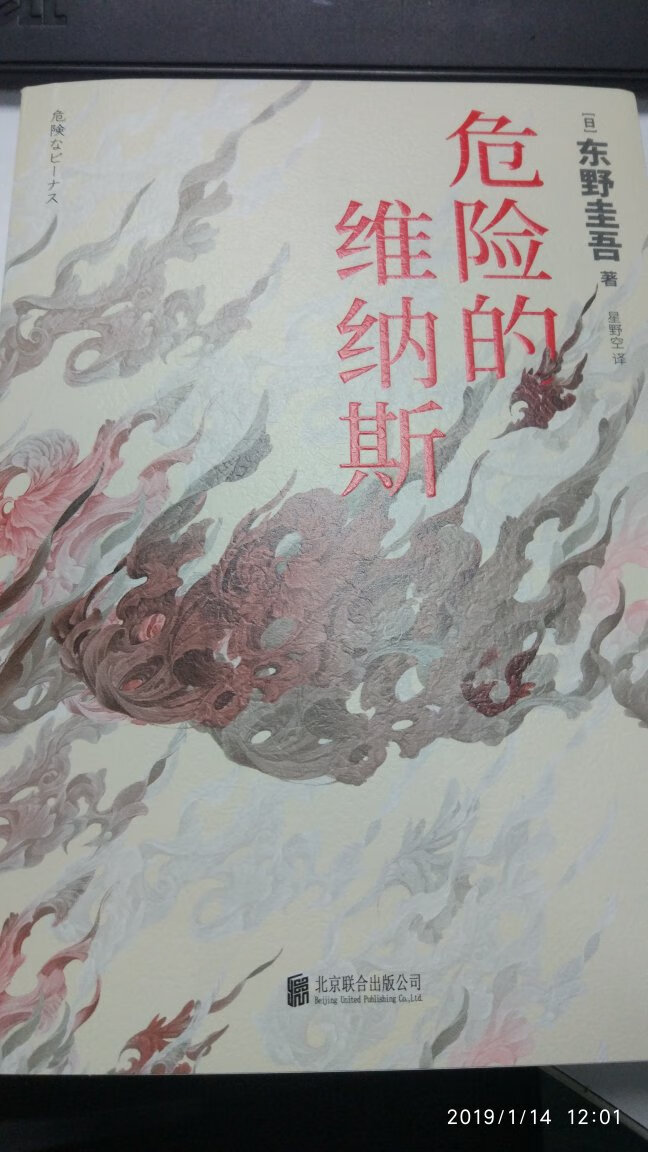 [日]东野圭吾 著
星野空 译
危险的
维纳斯
危険なビーナス
北京联合出版公司
Beijing United Publishing Co.,Ltd.
2019/1/14 12:01